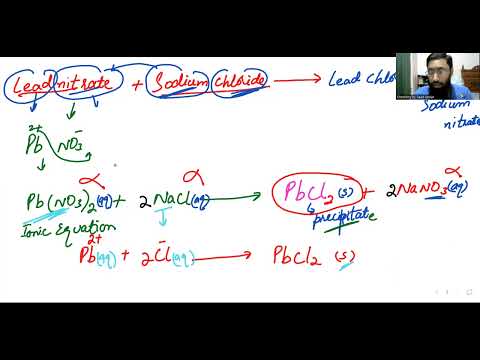 Lead nitrate + Sodium Chloride ⟶ Lead Chlor
Sodium
nitrate
Pb²⁺ NO₃⁻
Pb(NO₃)₂(aq) + 2NaCl(aq) ⟶ PbCl₂(s) + 2NaNO₃(aq)
precipitate
Ionic Equation
Pb²⁺(aq) + 2Cl⁻(aq) ⟶ PbCl₂ (s)